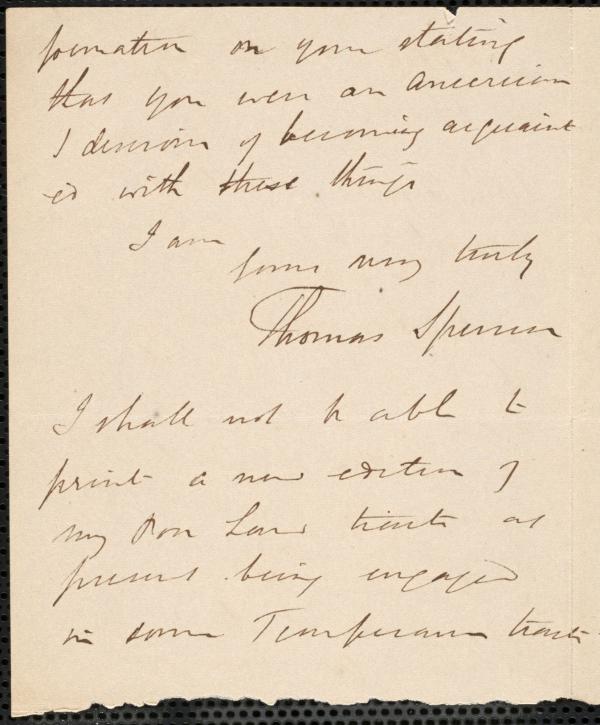 formation on your stating
that you were an American
& desirous of becoming acquaint
ed with these things
I am
yours very truly
Thomas Spencer
I shall not be able to
print a new edition of
my Poor Law tracts at
present being engaged
in some Temperance tracts